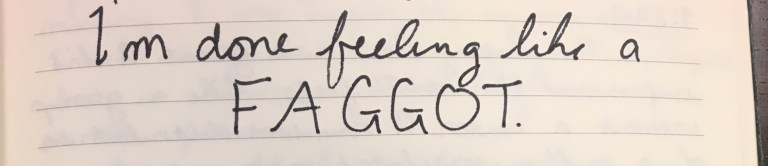 I'm done feeling like a
FAGGOT.